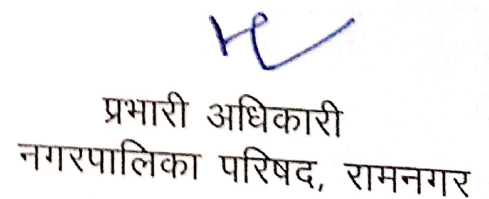 प्रभारी अधिकारी
नगरपालिका परिषद, रामनगर